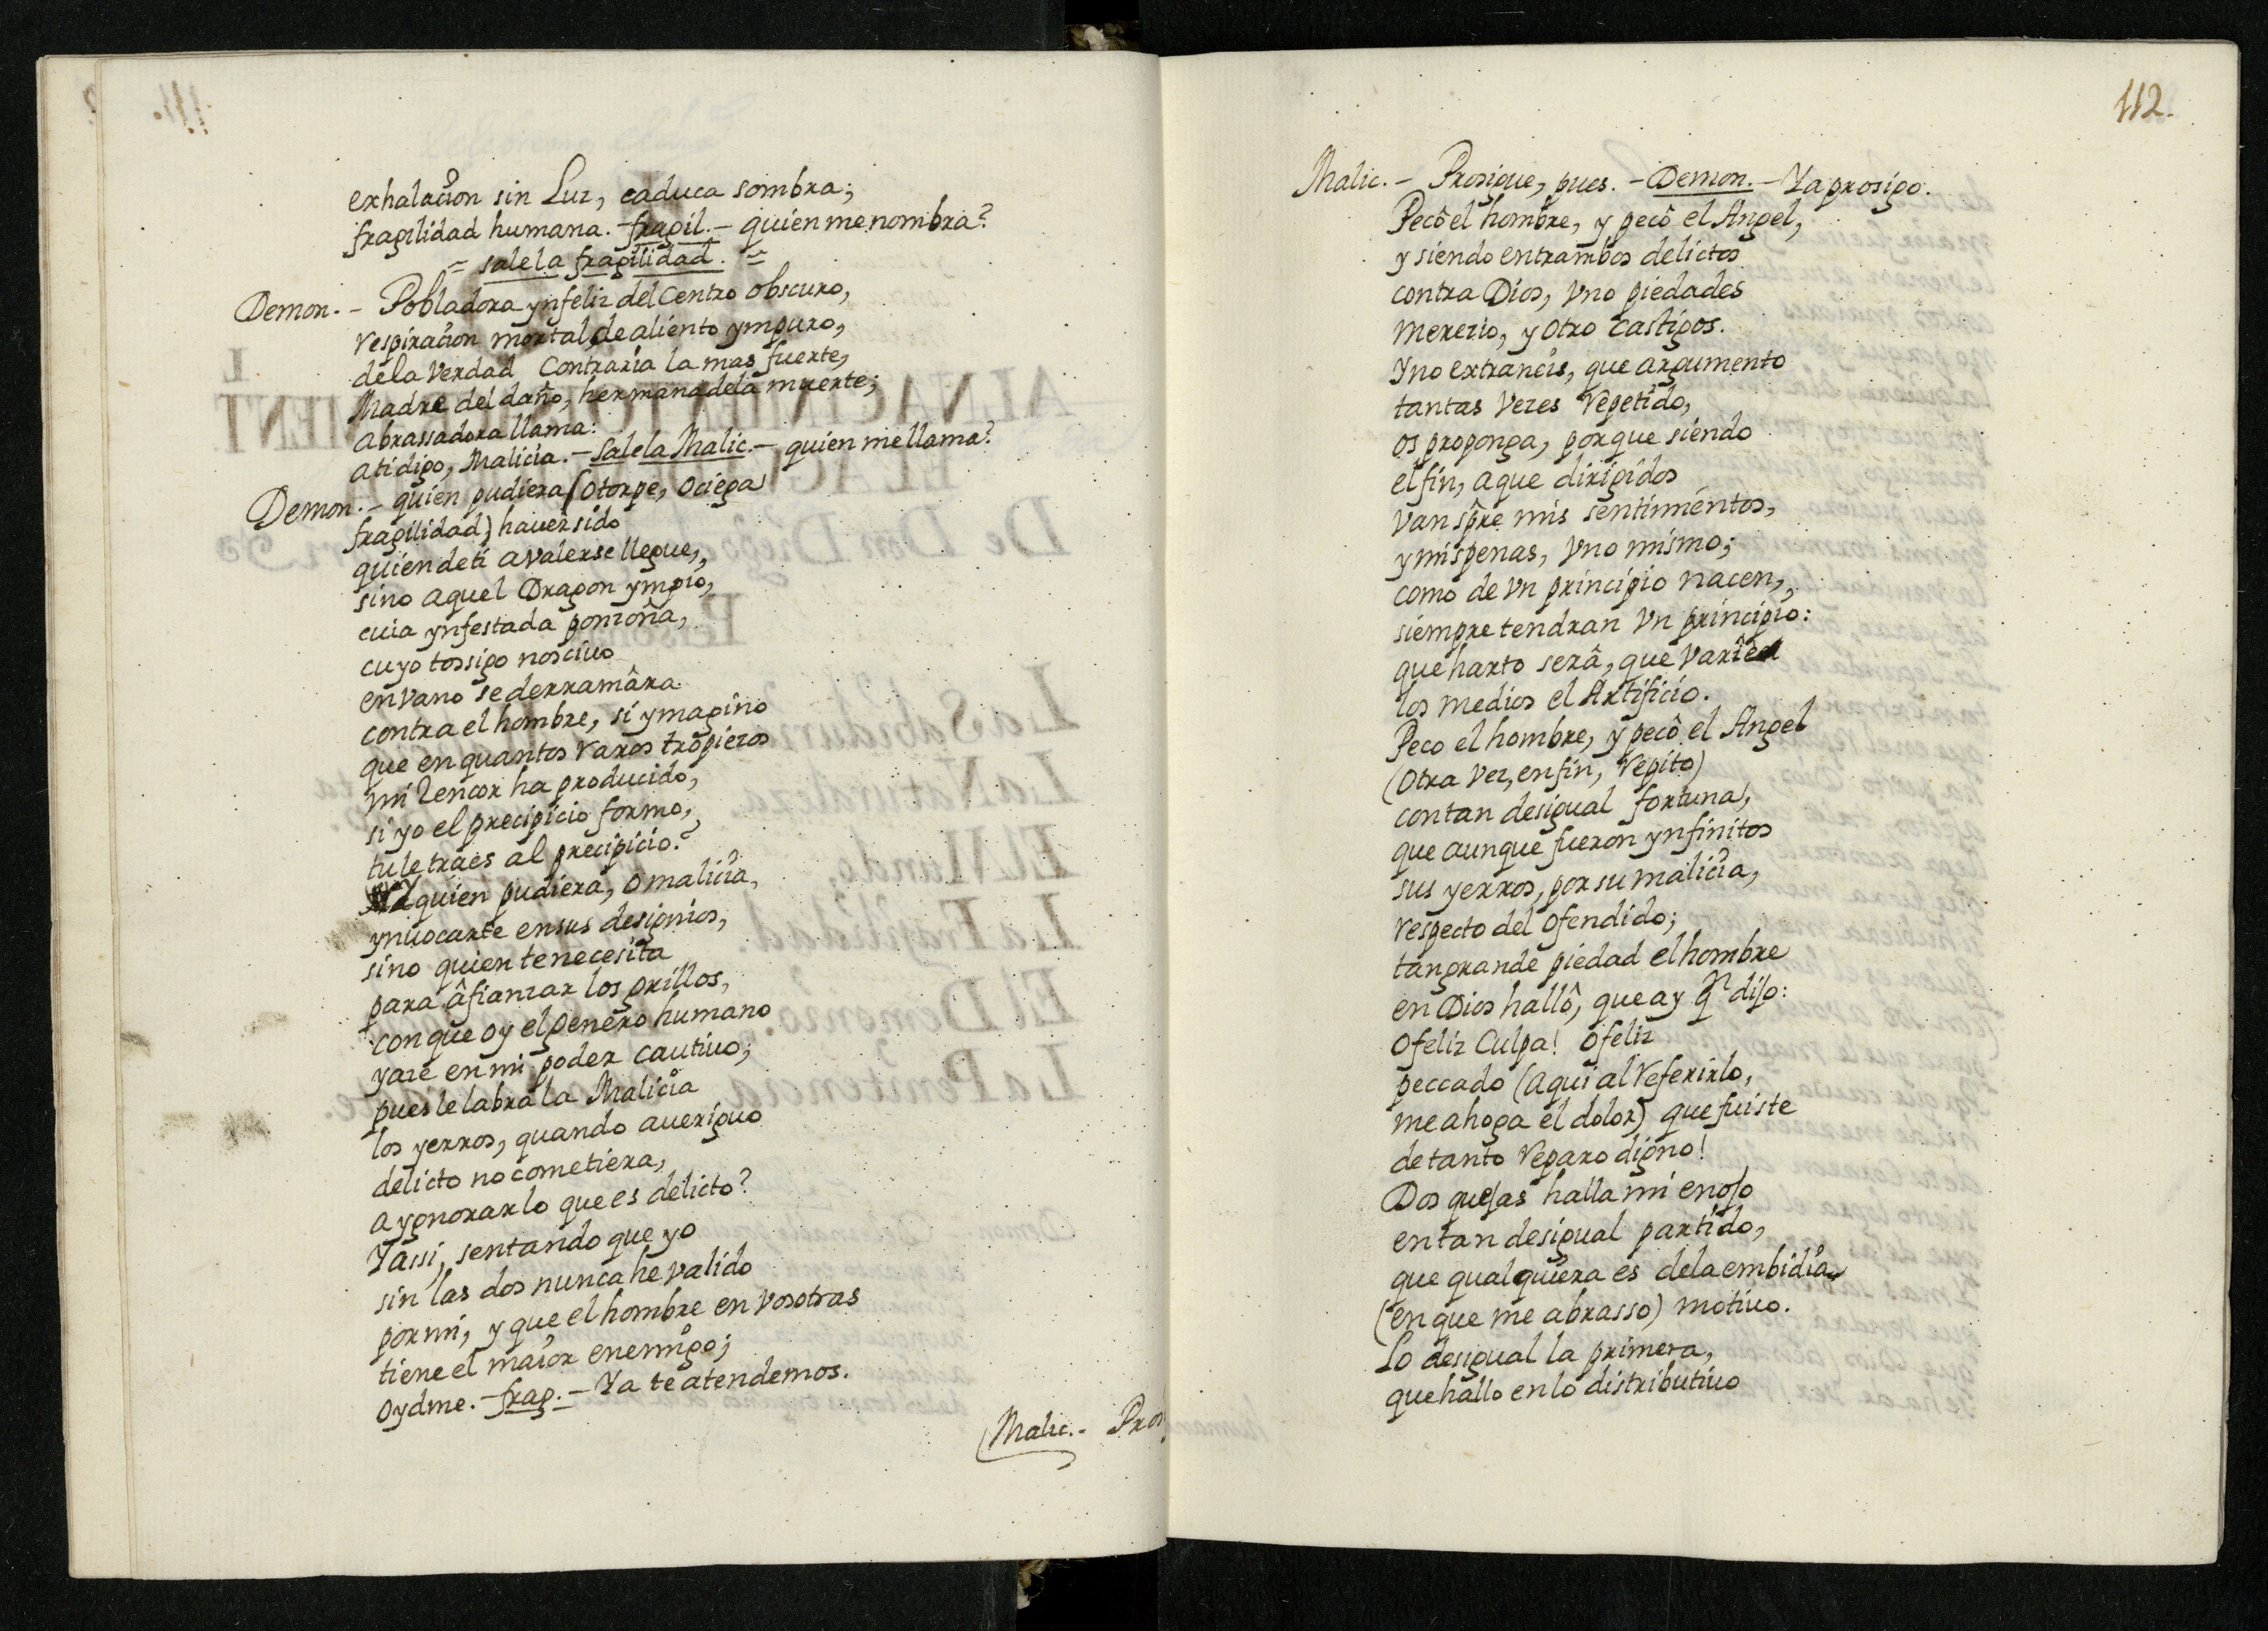 exhalacion sin Luz, caduca sombra;
fragilidad humana. - fragil. - quien me nombra?
= sale la fragilidad. =
Demon. - Pobladora ynfeliz del Centro obscuro,
respiracion mortal de aliento ympuro,
de la Verdad Contraria la mas fuerte,
Madre del daño, hermana dela muerte;
abrassadora llama:
a ti digo, Malicia. - Sale la Malic. - quien me llama?
Demon. - quien pudiera (O torpe, O ciega
fragilidad) haver sido
quien de ti a valerse llegue,
sino aquel Dragon ympio,
cuia ynfestada ponzoña,
cuyo tossigo nocivo
en vano se derramâra
contra el hombre, si ymagino
que en quantos raros tropiezos
mi rencor ha producido,
si yo el precipicio formo,
tu le traes al precipicio?
Ya quien pudiera, o malicia,
ynuocarte en sus designios,
sino quien te necesita
para âfianzar los grillos,
con que oy el genero humano
yaze en mi poder cautiuo;
pues le labra la Malicia
los yerros, quando aueriguo
delicto no cometiera,
a ygnorar lo que es delicto?
Y assi, sentando que yo
sin las dos nunca he valido
por mi, y que el hombre en vosotras
tiene el maior enemigo;
oydme. - frag. - Ya te atendemos.
Malic. - Pros
112.
Malic. - Prosigue, pues. - Demon. - Ya prosigo.
Pecô el hombre, y pecô el Angel,
y siendo entrambos delictos
contra Dios, vno piedades
merecio, y otro castigos.
Y no extrañeis, que argumento
tantas vezes repetido,
os proponga, porque siendo
el fin, a que dirigidos
van spre mis sentimientos,
y mis penas, vno mismo;
como de vn principio nacen,
siempre tendran vn principio:
que harto serâ, que varîe
los medios el Artificio.
Peco el hombre, y pecô el Angel
(Otra vez, en fin, repito)
con tan desigual fortuna,
que aunque fueron ynfinitos
sus yerros, por su malicia,
respecto del ofendido;
tan grande piedad el hombre
en Dios hallô, que ay qn dijo:
O feliz Culpa! O feliz
peccado (aqui al referirlo,
me ahoga el dolor) que fuiste
de tanto reparo digno!
Dos quejas halla mi enojo
en tan desigual partido,
que qualquiera es dela embidia
(en que me abrasso) motiuo.
Lo desigual la primera,
que hallo en lo distributiuo